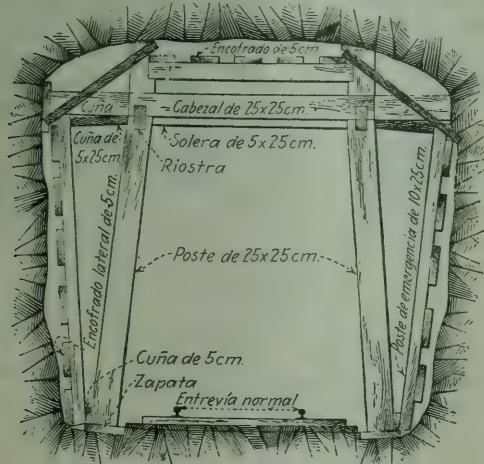 Encofrado de 5cm.
Cuña
Cabezal de 25x25cm.
Cuña de
5x25cm.
Solera de 5x25cm.
Riostra
Encofrado lateral de 5cm.
Poste de 25x25cm.
Poste de emergencia de 10x25cm.
Cuña de 5cm.
Zapata
Entrevía normal